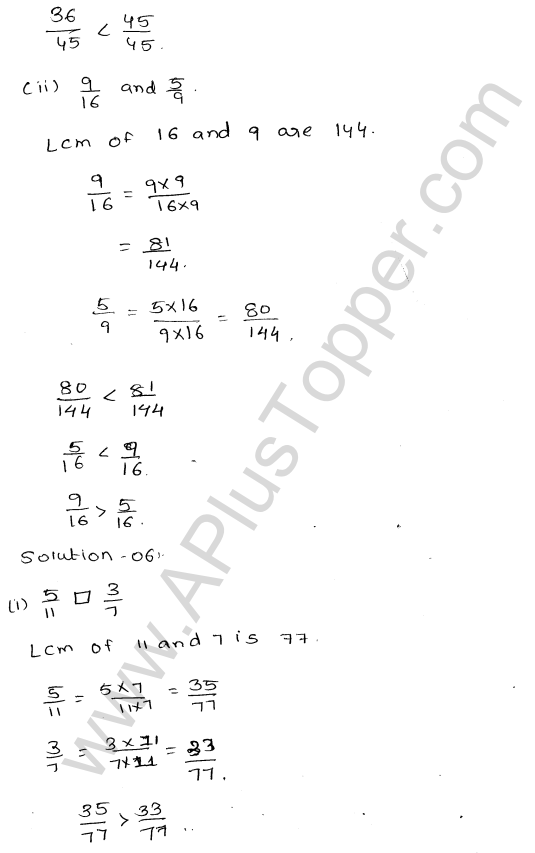 36/45 < 45/45.
(ii) 9/16 and 5/9.
Lcm of 16 and 9 are 144.
9/16 = 9×9/16×9
= 81/144.
5/9 = 5×16/9×16 = 80/144.
80/144 < 81/144
5/16 < 9/16.
9/16 > 5/16.
Solution-06:
(i) 5/11 □ 3/7
Lcm of 11 and 7 is 77.
5/11 = 5×7/11×7 = 35/77
3/7 = 3×11/7×11 = 33/77.
35/77 > 33/77 ..
www.APlusTopper.com